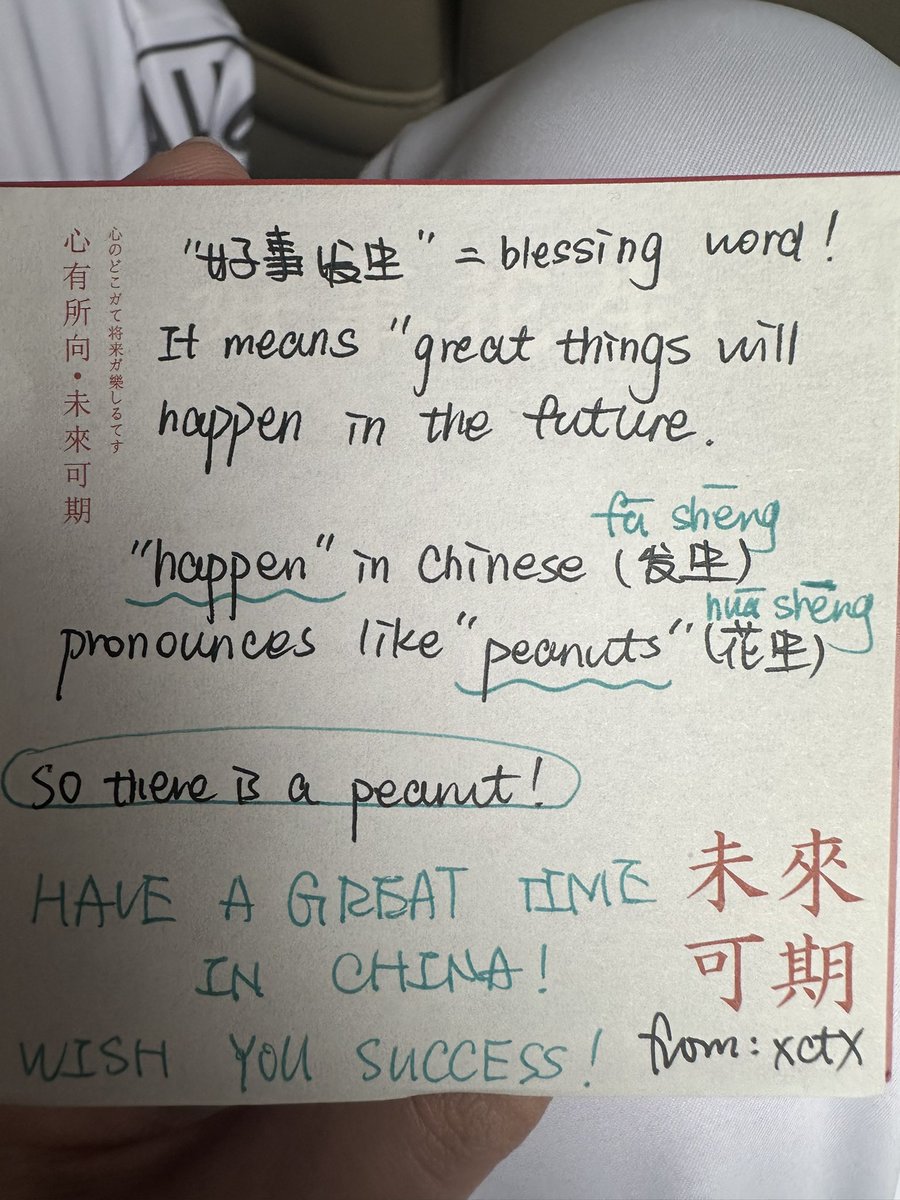 心有所向・未來可期
心のどこガて将来ガ樂しるてす
"好事发生" = blessing word!
It means "great things will
happen in the future.
fā shēng
"happen" in Chinese (发生)
huā shēng
pronounces like "peanuts" (花生)
So there is a peanut!
HAVE A GREAT TIME
IN CHINA!
WISH YOU SUCCESS!
未來
可期
from: xctx